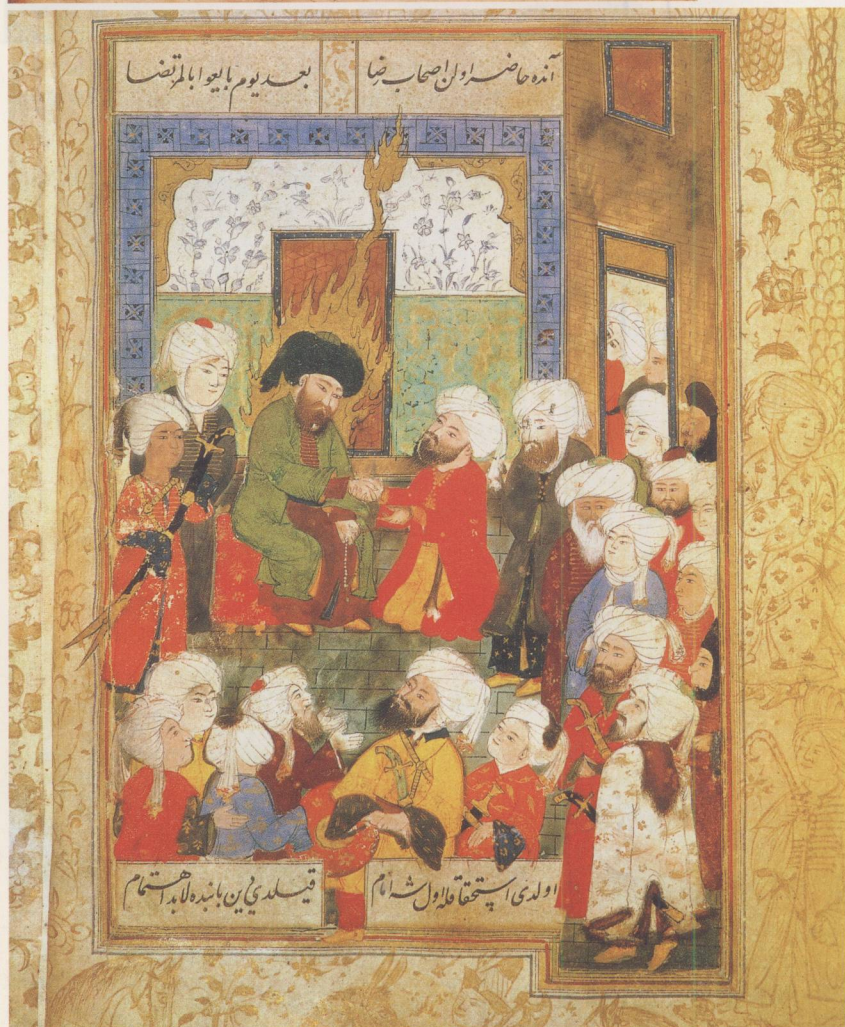 آنده حاضر اولن اصحاب رضا
بعد یوم بایعوا بالمرتضا
اولدی استحقاقله اول شه امام
قیلدی دین بابنده لابد اهتمام